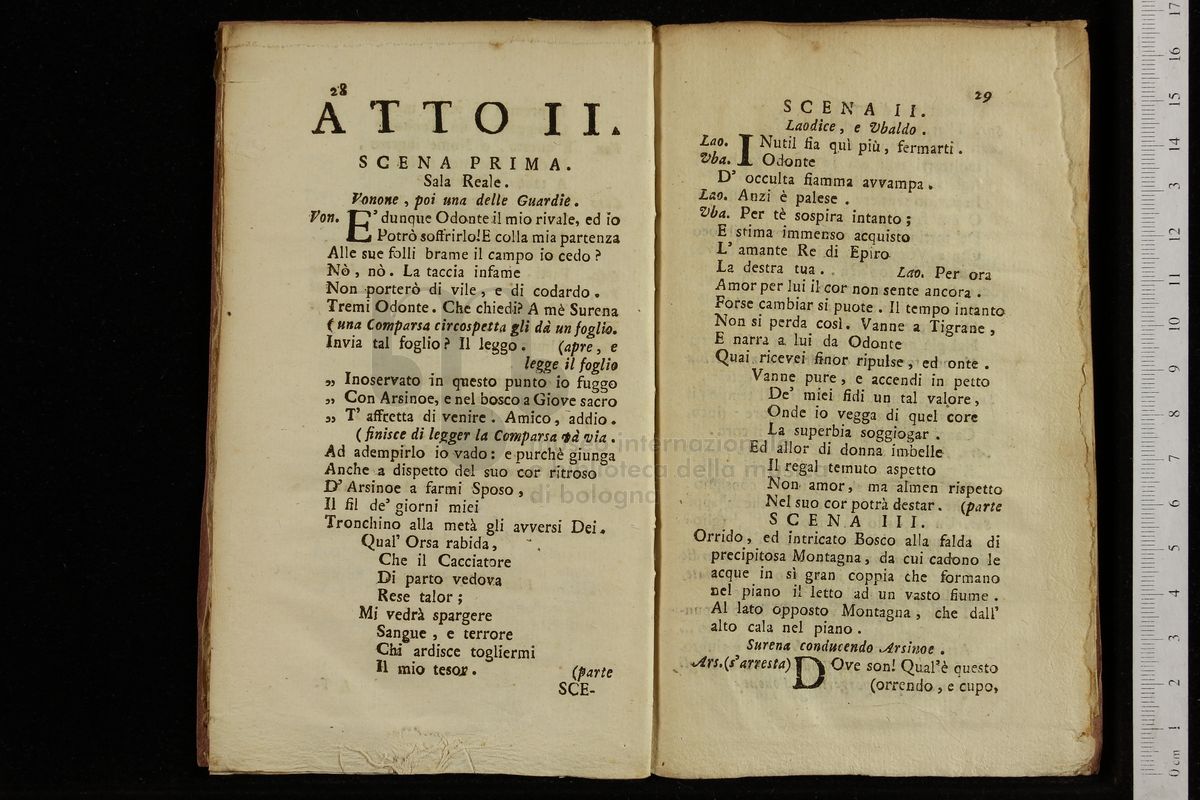 28
ATTO II.
SCENA PRIMA.
Sala Reale.
Vonone, poi una delle Guardie.
Von. E' dunque Odonte il mio rivale, ed io
Potrò soffrirlo! E colla mia partenza
Alle sue folli brame il campo io cedo?
Nò, nò. La taccia infame
Non porterò di vile, e di codardo.
Tremi Odonte. Che chiedi? A mè Surena
(una Comparsa circospetta gli dà un foglio.
Invia tal foglio? Il leggo. (apre, e
legge il foglio
„ Inoservato in questo punto io fuggo
„ Con Arsinoe, e nel bosco a Giove sacro
„ T' affretta di venire. Amico, addio.
(finisce di legger la Comparsa và via.
Ad adempirlo io vado: e purchè giunga
Anche a dispetto del suo cor ritroso
D' Arsinoe a farmi Sposo,
Il fil de' giorni miei
Tronchino alla metà gli avversi Dei.
Qual' Orsa rabida,
Che il Cacciatore
Di parto vedova
Rese talor;
Mi vedrà spargere
Sangue, e terrore
Chi ardisce togliermi
Il mio tesor. (parte
SCE-
29
SCENA II.
Laodice, e Vbaldo.
Lao. INutil fia quì più, fermarti.
Vba. Odonte
D' occulta fiamma avvampa.
Lao. Anzi è palese.
Vba. Per tè sospira intanto;
E stima immenso acquisto
L' amante Re di Epiro
La destra tua. Lao. Per ora
Amor per lui il cor non sente ancora.
Forse cambiar si puote. Il tempo intanto
Non si perda così. Vanne a Tigrane,
E narra a lui da Odonte
Quai ricevei finor ripulse, ed onte.
Vanne pure, e accendi in petto
De' miei fidi un tal valore,
Onde io vegga di quel core
La superbia soggiogar.
Ed allor di donna imbelle
Il regal temuto aspetto
Non amor, ma almen rispetto
Nel suo cor potrà destar. (parte
SCENA III.
Orrido, ed intricato Bosco alla falda di
precipitosa Montagna, da cui cadono le
acque in sì gran coppia che formano
nel piano il letto ad un vasto fiume.
Al lato opposto Montagna, che dall'
alto cala nel piano.
Surena conducendo Arsinoe.
Ars. (s'arresta) DOve son! Qual'è questo
(orrendo, e cupo,
museo internazionale
biblioteca della musica
di bologna